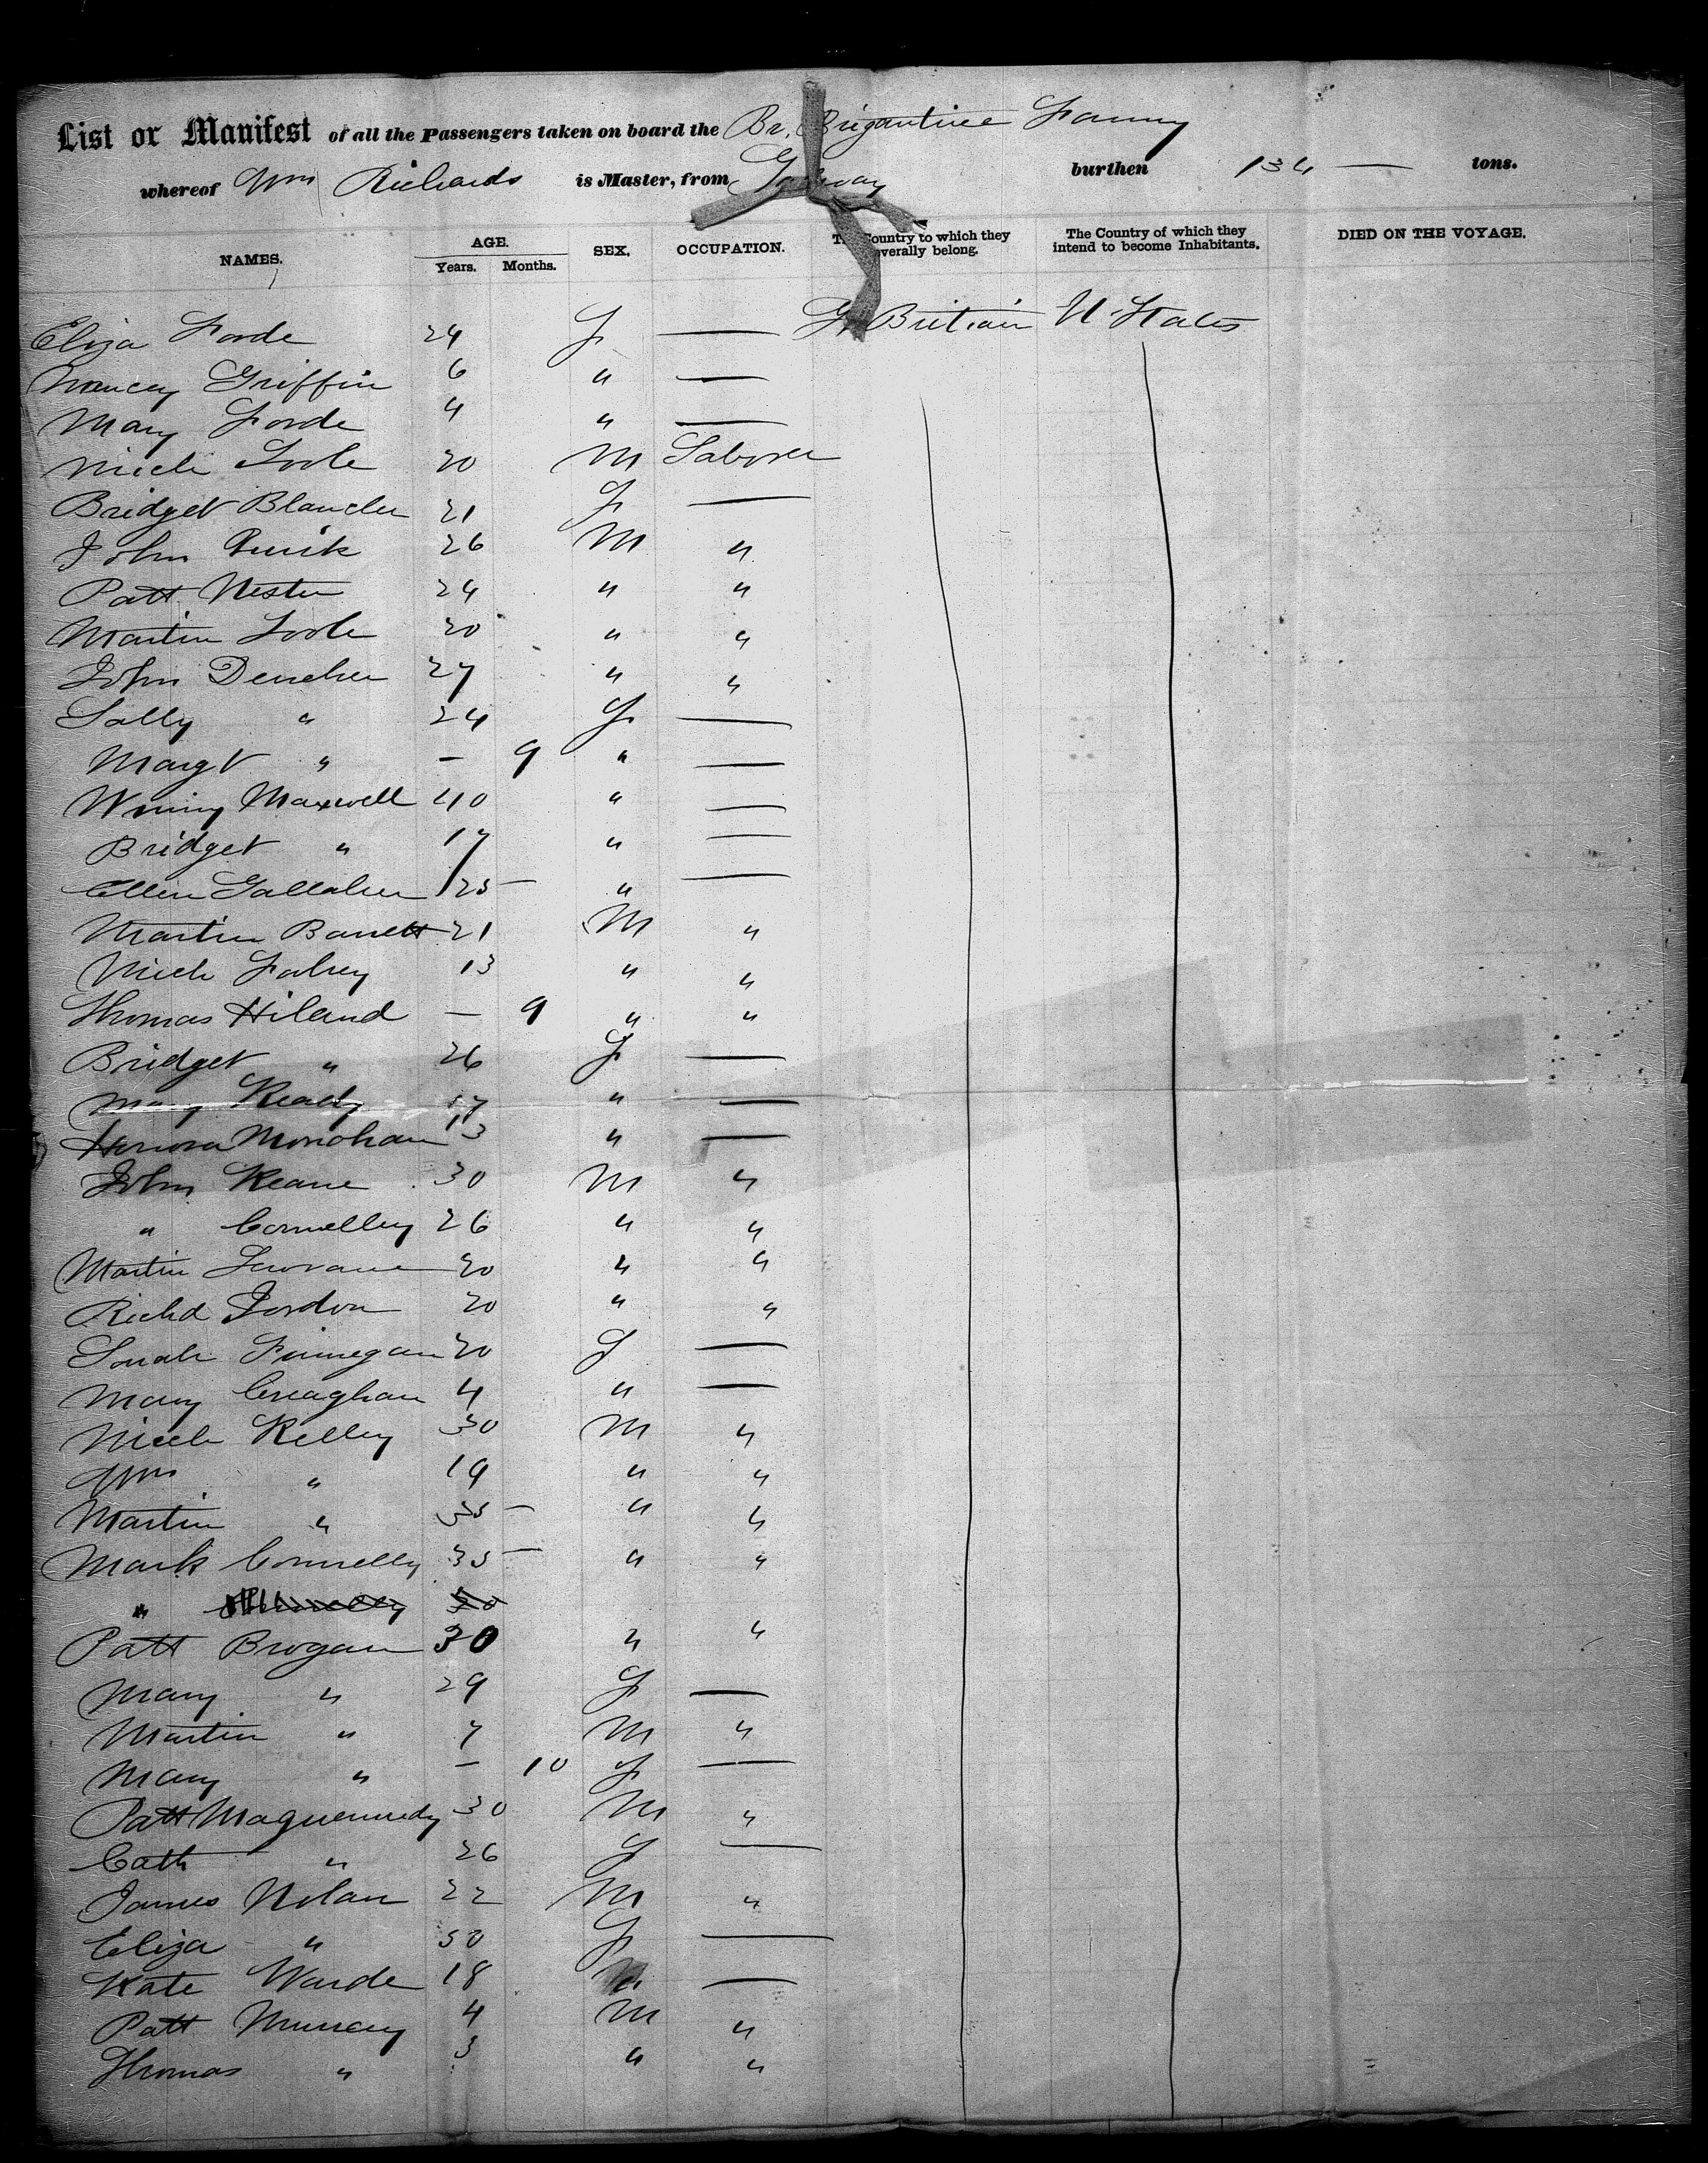 List or Manifest of all the Passengers taken on board the Br. Brigantine Fanny
whereof Wm Richards is Master, from Galway burthen 134 — tons.
NAMES. AGE. Years. Months. SEX. OCCUPATION. The Country to which they severally belong. The Country of which they intend to become Inhabitants. DIED ON THE VOYAGE.
Eliza Forde 24 F — Gt Britain U States
Nancy Griffin 6 " —
Mary Forde 4 " —
Mich Toole 20 M Laborer
Bridget 21 F —
John Quirk 26 M "
Patt Nester 24 " "
Martin Toole 20 " "
John 27 " "
Sally " 24 F —
Margt " — 9 " —
Winny Maxwell 40 " —
Bridget " 17 " —
Ellen Gallaher 25 — " —
Martin Barrett 21 M "
Mich Fahey 13 " "
Thomas Hiland — 9 " "
Bridget " 26 F —
Mary Keady 17 " —
Honora Monohan 13 " —
John Keane 30 M "
" Connelley 26 " "
Martin 20 " "
Richd Jordon 20 " "
Sarah Finnegan 20 F —
Mary Creaghan 4 " —
Mich Kelley 30 M "
Wm " 19 " "
Martin " 35 — " "
Mark Connelly 35 — " "
"
Patt Brogan 30 " "
Mary " 29 F —
Martin " 7 M "
Mary " — 10 F —
Patt 30 M "
Cath " 26 F —
James Nolan 22 M "
Eliza " 50 F —
Kate Warde 18 " —
Patt Murray 4 M "
Thomas " 3 " "